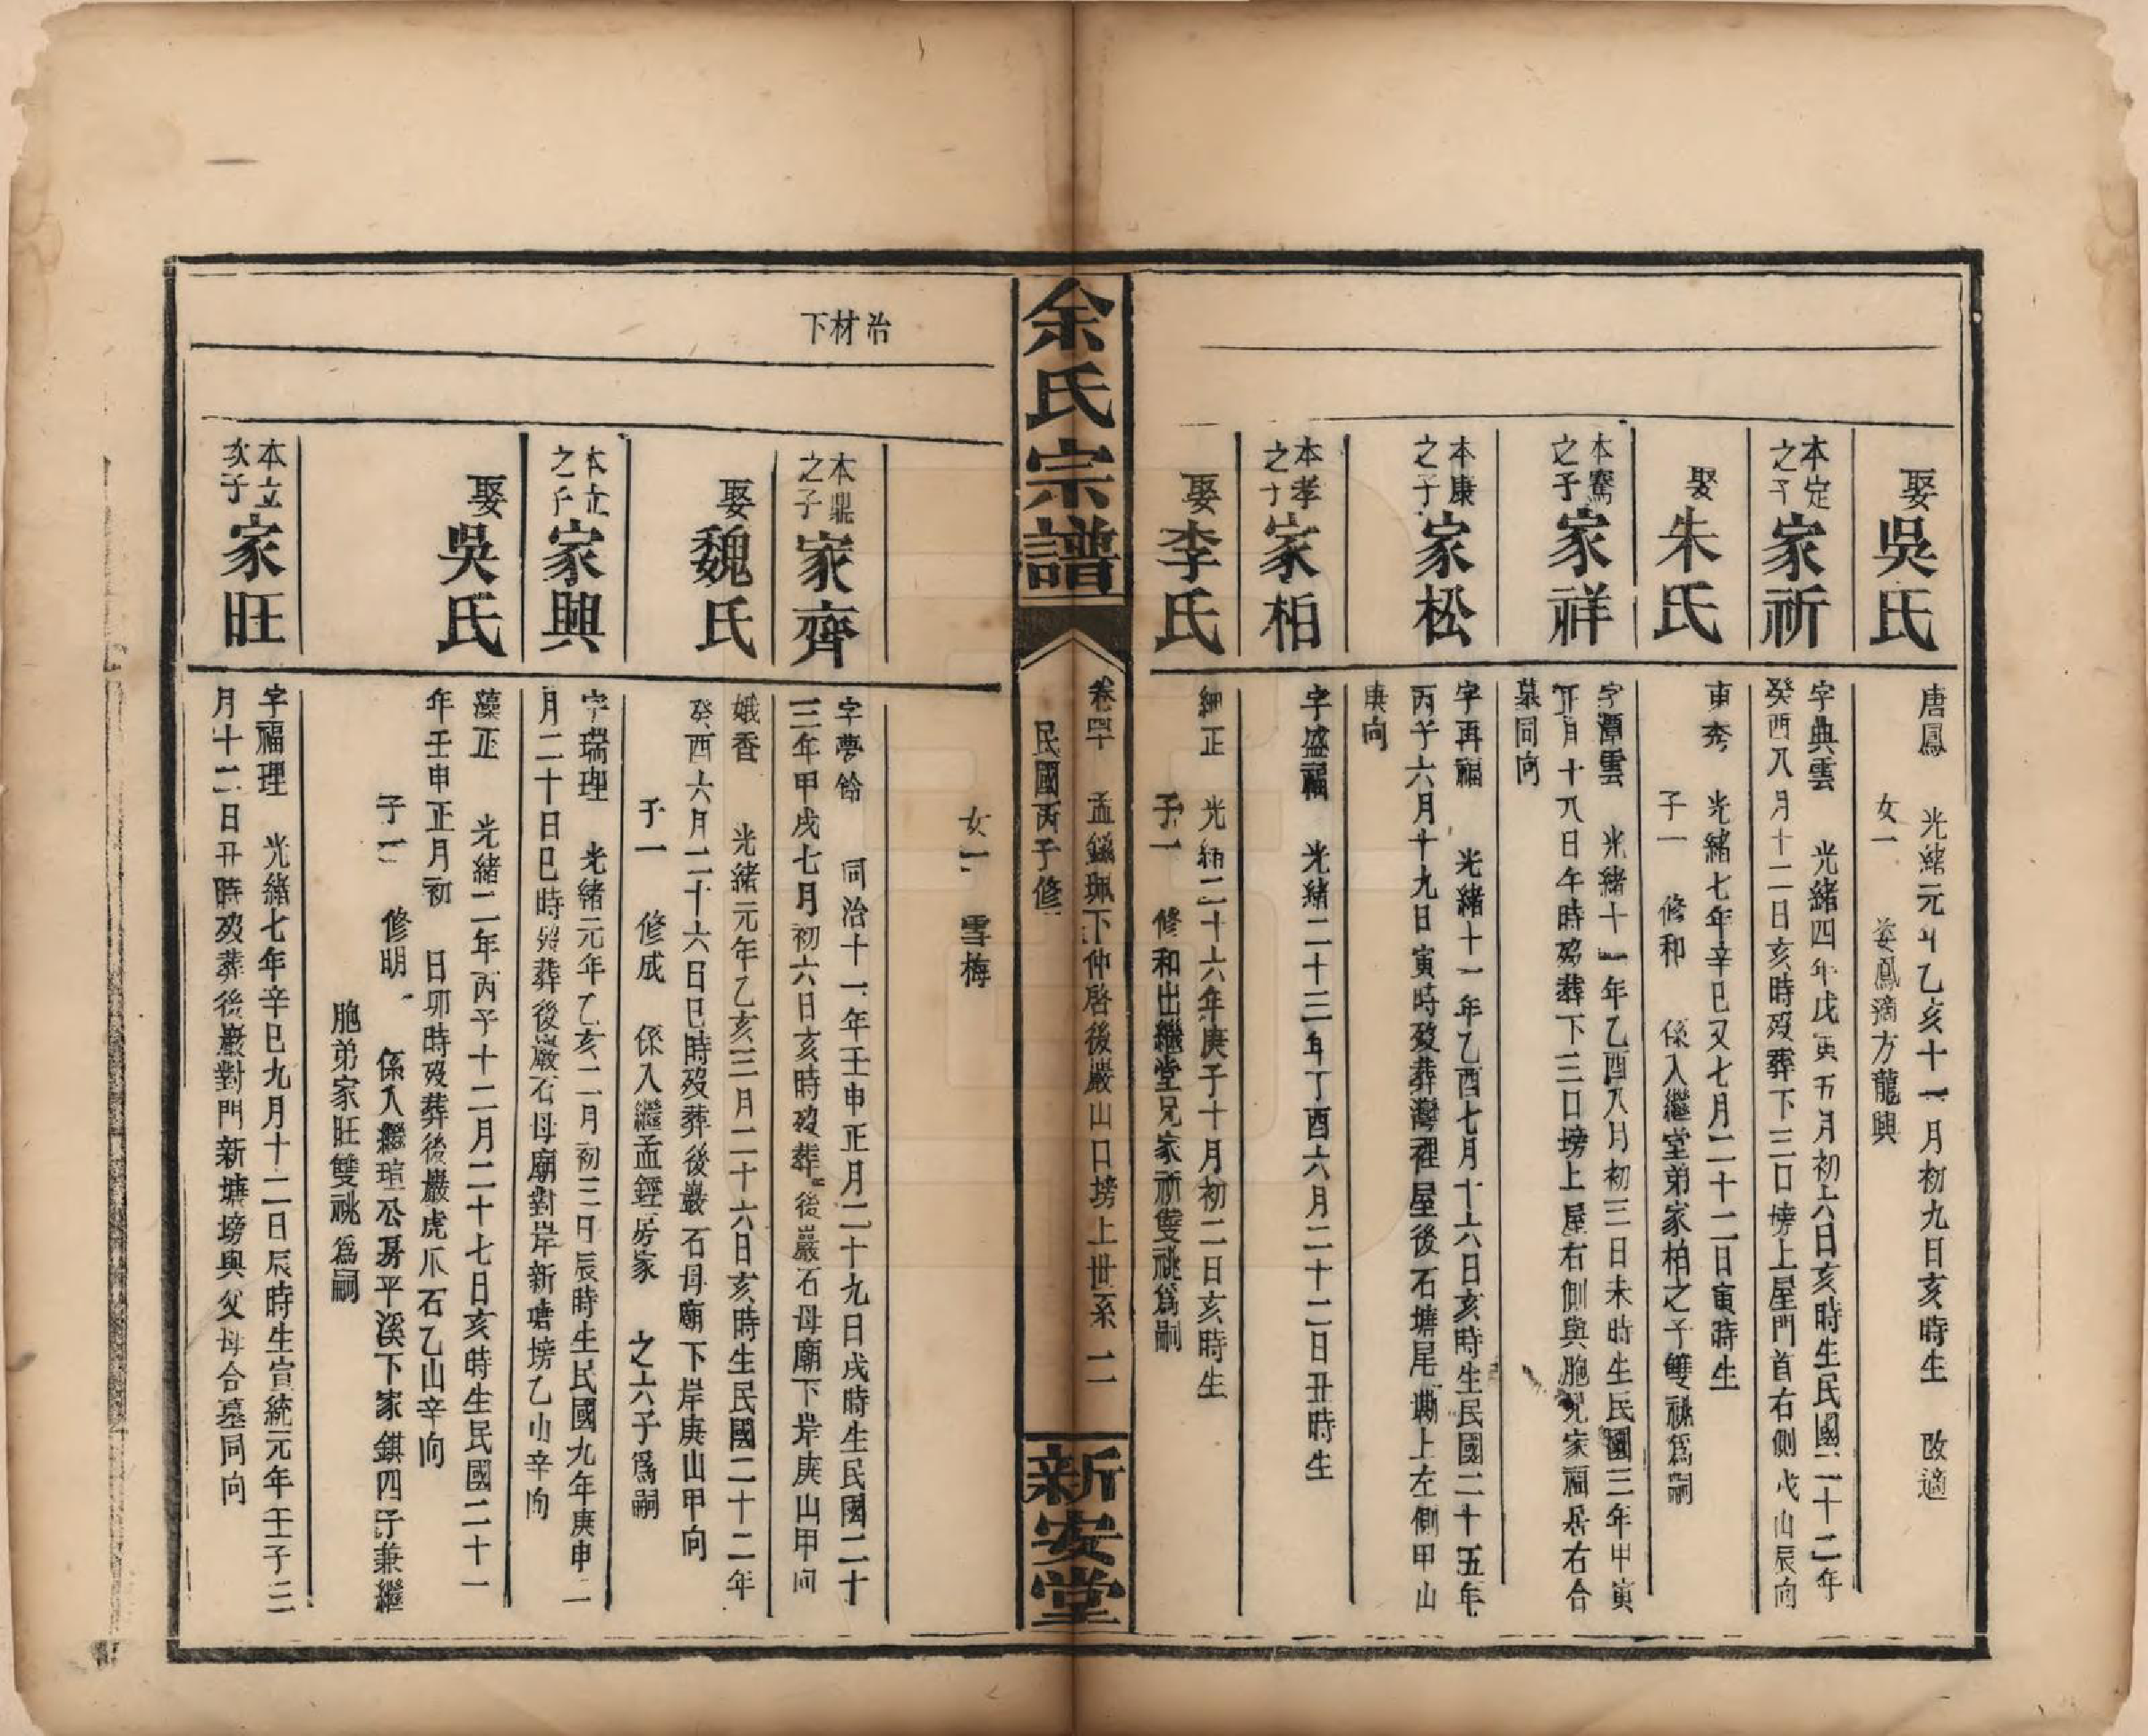 娶吳氏
唐鳳 光緒元年乙亥十一月初九日亥時生 改適
女一 姿鳳適方龍興
本定之子家祈
字典雲 光緒四年戊寅五月初六日亥時生民國二十二年
癸酉八月十二日亥時歿葬下三口塝上屋門首右側戌山辰向
娶朱氏
東秀 光緒七年辛巳又七月二十二日寅時生
子一 修和 係入繼堂弟家柏之子雙祧爲嗣
本騫之子家祥
字潭雲 光緒十一年乙酉八月初三日未時生民國三年甲寅
正月十八日午時歿葬下三口塝上屋右側與胞兄家福居右合
墓同向
本康之子家松
字再福 光緒十一年乙酉七月十六日亥時生民國二十五年
丙子六月十九日寅時歿葬灣裡屋後石塘尾塝上左側甲山
庚向
本孝之子家柏
字盛福 光緒二十三年丁酉六月二十二日丑時生
娶李氏
細正 光緒二十六年庚子十月初二日亥時生
子一 修和出繼堂兄家祈雙祧爲嗣
余氏宗譜
卷四十 孟鉉珮下仲啓後巖山口塝上世系 二
民國丙子修
新安堂
治材下
女一 雪梅
本鼎之子家齊
字夢鈴 同治十一年壬申正月二十九日戌時生民國二十
三年甲戌七月初六日亥時歿葬後巖石母廟下岸庚山甲向
娶魏氏
娥香 光緒元年乙亥三月二十六日亥時生民國二十二年
癸酉六月二十六日巳時歿葬後巖石母廟下岸庚山甲向
子一 修成 係入繼孟鋞房家 之六子爲嗣
本立之子家興
字瑞理 光緒元年乙亥二月初三日辰時生民國九年庚申二
月二十日巳時歿葬後巖石母廟對岸新塘塝乙山辛向
娶吳氏
藻正 光緒二年丙子十二月二十七日亥時生民國二十一
年壬申正月初 日卯時歿葬後巖虎爪石乙山辛向
子一 修明 係入繼瑄公房平溪下家錤四子兼繼
胞弟家旺雙祧爲嗣
本立次子家旺
字福理 光緒七年辛巳九月十二日辰時生宣統元年壬子三
月十二日丑時歿葬後巖對門新塘塝與父母合墓同向